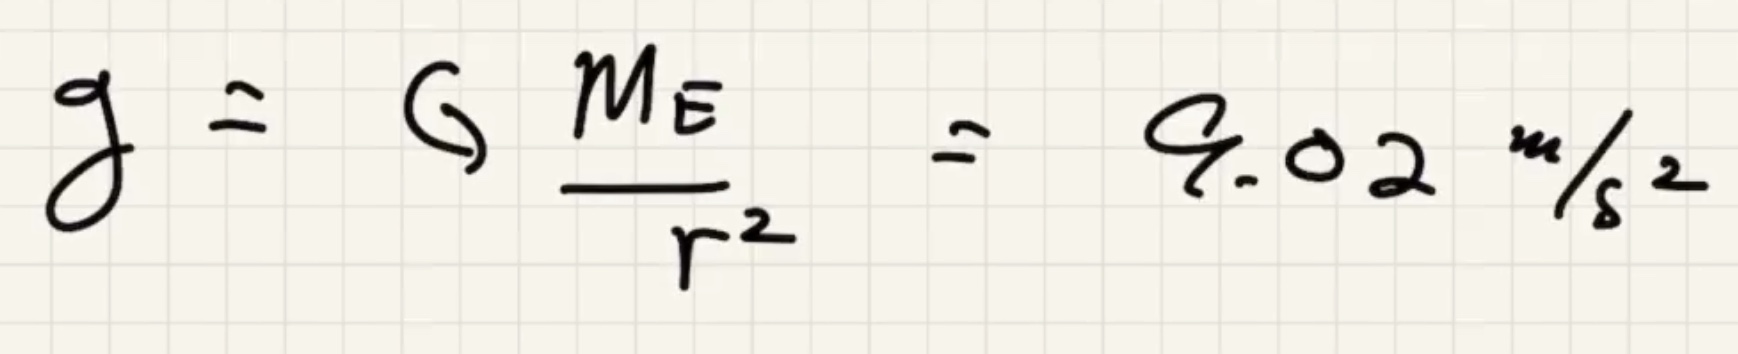 g = G M_E / r² = 9.02 m/s²